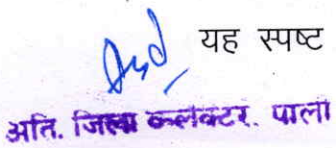 यह स्पष्ट
अति. जिला कलक्टर. पाली